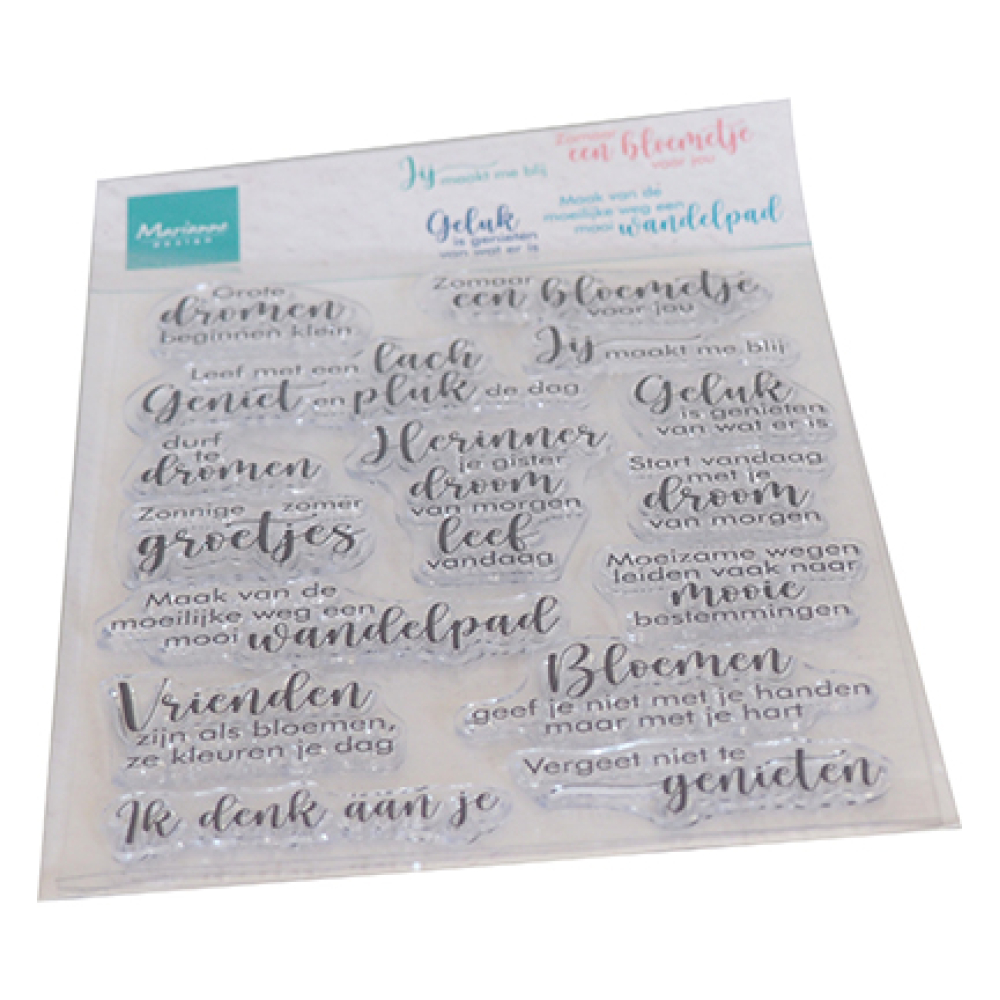 Marianne
DESIGN
Jij maakt me blij
Zomaar
een bloemetje
voor jou
Geluk
is genieten
van wat er is
Maak van de
moeilijke weg een
mooi wandelpad
Grote
dromen
beginnen klein
Zomaar
een bloemetje
voor jou
Leef met een lach
Geniet en pluk de dag
Jij maakt me blij
Geluk
is genieten
van wat er is
durf
te
dromen
Herinner
je gister
droom
van morgen
leef
vandaag
Start vandaag
met je
droom
van morgen
Zonnige zomer
groetjes
Moeizame wegen
leiden vaak naar
mooie
bestemmingen
Maak van de
moeilijke weg een
mooi wandelpad
Vrienden
zijn als bloemen,
ze kleuren je dag
Bloemen
geef je niet met je handen
maar met je hart
Vergeet niet te
genieten
Ik denk aan je